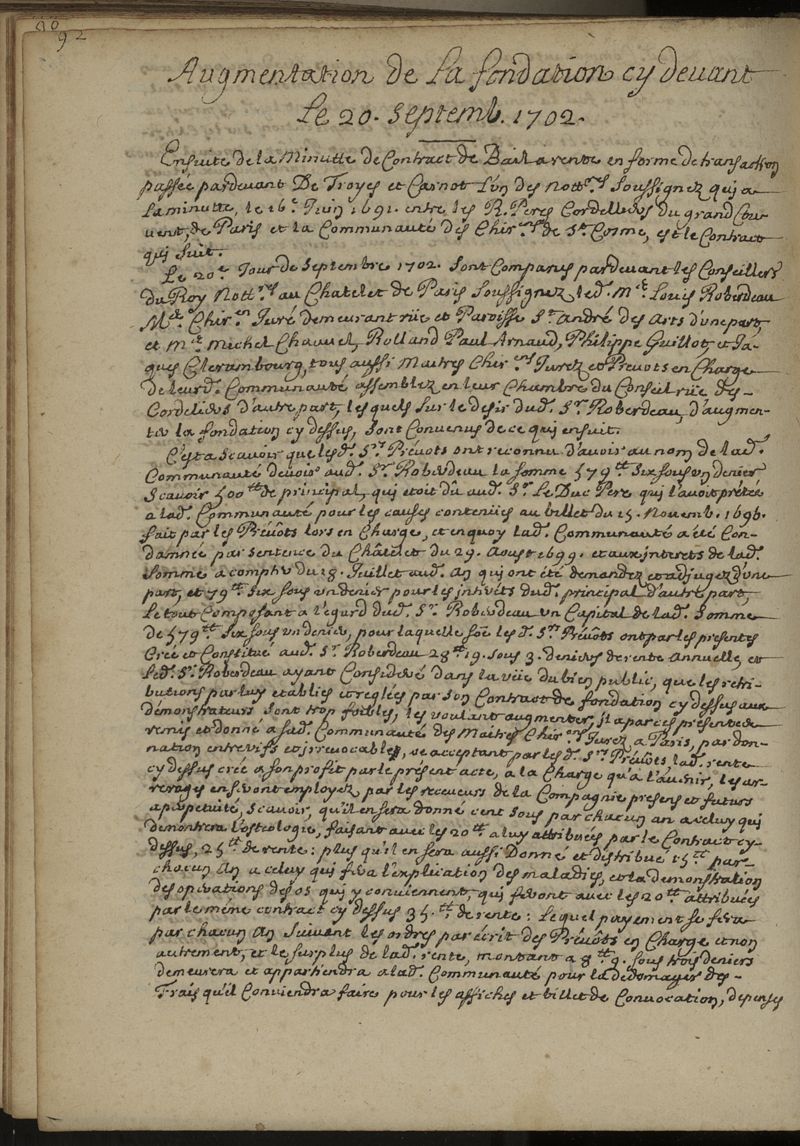 92
Augmentation de La fondation cy devant
Le 20. Septemb. 1702.
Ensuite de la Minutte de Contract de Bail a rente en forme de transaction
passée pardevant De Troyes et Carnot L'ũn des Nott.res Soussignez qui a
La minutte, le 16.e Juin 1691. entre les R. Peres Cordelliers du grand Cou-
vent, de Paris et la Communauté des Chir.ens de St. Cosme, est le Contract
qui suit.
Le 20.e Jour de Septembre 1702. Sont Comparus pardevant les Conseillers
du Roy Nott.res au Chatelet de Paris Soussignez, led. M.e Louis Roberdeau
M.e Chir.en Juré demeurant rüe et Paroisse St. André des Arts d'une part,
et M.e Michel Chauvel, Rolland Paul Arnaud, Philippe Guillot, et Ja-
ques Clerambourg, tous aussi Maitres Chir.ens Jurez et Prevots en Charge
de leurd. Communauté assemblez en leur Chambre du Conseil rüe des
Cordeliers d'autre part, lesquels sur le desir dud. Sr. Roberdeau, d'augmen-
ter la fondation cy dessus, sont Convenus de ce qui ensuit.
C'est a scavoir que lesd. Srs. Prevots ont reconnu d'avoir au nom de lad.
Communauté devoir aud. Sr. Roberdeau la somme 579.tt Six sous un denier
Scavoir 500.tt de principal, qui etoit dû aud. Sr. Le Duc Pere qui l'avoit prêtée
a lad. Communauté pour les causes contenües au billet du 15. Novemb. 1696.
fait par les Prevôts lors en Charge, et en quoy lad. Communauté a été Con-
damnée par Sentence du Châtelet du 29. Aoust 1699. et aux interets de lad.
Somme a compter du 18. Juillet aud. an qui ont été demandez et adjugez d'une
part, et 79.tt Six sous un denier pour les interets dud. principal d'autre part,
Le tout Composant a l'egard dud. Sr. Roberdeau un Capital de lad. Somme
de 579.tt Six sous un denier, pour laquelle soe lesd. Srs. Prevots ont par les presentes
Créé et Constitué aud. Sr. Roberdeau 28.tt 19. Sous 3. deniers de rente Annuelle, et
led. Sr. Roberdeau ayant Consideré dans la vüe du bien public, que les retri-
butions par luy etablies et reglées par son Contract de fondation cy dessus aux
démonstrateurs sont trop foibles, les voulant augmenter, il a par ces presentes
remis et donné a lad. Communauté des Maitres Chir.ens Jurez a Paris, par don-
nation entrevifs et irrevocables, ce acceptant par lesd. Srs. Prevôts lad. rente
cy dessus crée a son profit par le présent acte, a la Charge qu'a l'avenir, les ar-
rerages en seront employez par les receveurs de la Compagnie presens et futurs
a perpetuité, Scavoir, qu'il en sera donné cent sous par chacun an a celuy qui
demontrera l'osteologie, faisant avec les 20.tt a luy attribuées par le Contract cy-
dessus, 25.tt de rente: plus qu'il en sera aussi Donné et distribué 15.tt par
chacun An a celuy qui fera l'explication des maladies, et la demonstration
des operations des os qui y conviennent, qui feront avec les 20.tt attribuées
par le même contract cy dessus 35.tt de rente: Lequel payement se fera
par chacun An suivant les ordres par écrit des Prévôts en Charge et non
autrement, et le surplus de lad. rente, montant a 8.tt 9. sous trois deniers
demeurera et appartiendra a lad. Communauté pour la dedomager des-
Frais qu'il Conviendra faire pour les affiches et billet de Convocation, depenses